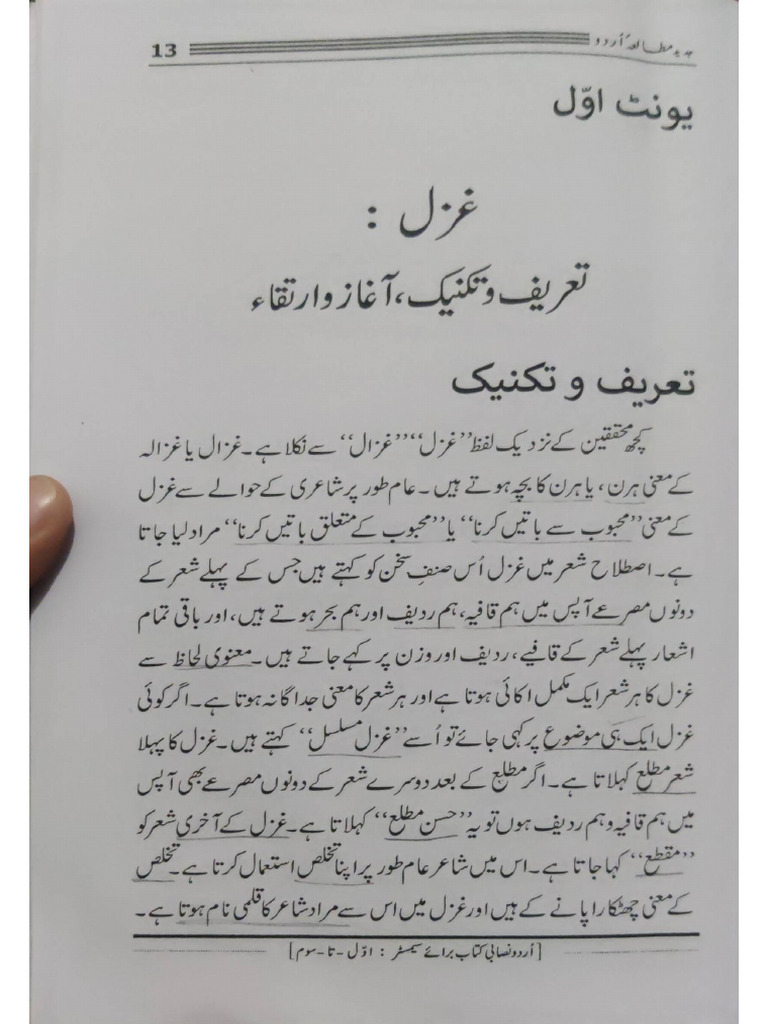 جدید مطالعۂ اُردو 13
یونٹ اوّل
غزل :
تعریف و تکنیک، آغاز و ارتقاء
تعریف و تکنیک
کچھ محققین کے نزدیک لفظ ”غزل“ ”غزال“ سے نکلا ہے۔ غزال یا غزالہ
کے معنی ہرن، یا ہرن کا بچہ ہوتے ہیں۔ عام طور پر شاعری کے حوالے سے غزل
کے معنی ”محبوب سے باتیں کرنا“ یا ”محبوب کے متعلق باتیں کرنا“ مراد لیا جاتا
ہے۔ اصطلاح شعر میں غزل اُس صنفِ سخن کو کہتے ہیں جس کے پہلے شعر کے
دونوں مصرعے آپس میں ہم قافیہ، ہم ردیف اور ہم بحر ہوتے ہیں، اور باقی تمام
اشعار پہلے شعر کے قافیے، ردیف اور وزن پر کہے جاتے ہیں۔ معنوی لحاظ سے
غزل کا ہر شعر ایک مکمل اکائی ہوتا ہے اور ہر شعر کا معنی جداگانہ ہوتا ہے۔ اگر کوئی
غزل ایک ہی موضوع پر کہی جائے تو اُسے ”غزل مسلسل“ کہتے ہیں۔ غزل کا پہلا
شعر مطلع کہلاتا ہے۔ اگر مطلع کے بعد دوسرے شعر کے دونوں مصرعے بھی آپس
میں ہم قافیہ و ہم ردیف ہوں تو یہ ”حسن مطلع“ کہلاتا ہے۔ غزل کے آخری شعر کو
”مقطع“ کہا جاتا ہے۔ اس میں شاعر عام طور پر اپنا تخلص استعمال کرتا ہے۔ تخلص
کے معنی چھٹکارا پانے کے ہیں اور غزل میں اس سے مراد شاعر کا قلمی نام ہوتا ہے۔
[اُردو نصابی کتاب برائے سیمسٹر : اوّل - تا - سوم]